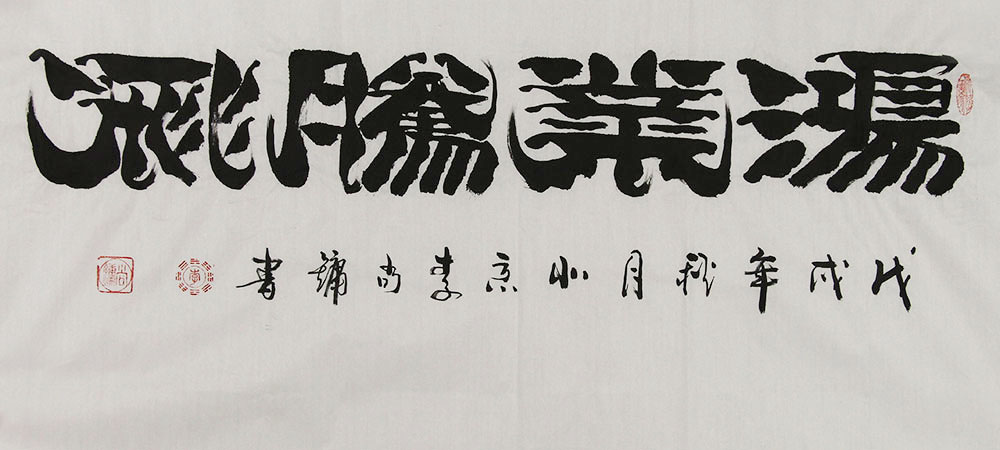 鴻業騰飛
戊戌年秋月北京李尚镛書